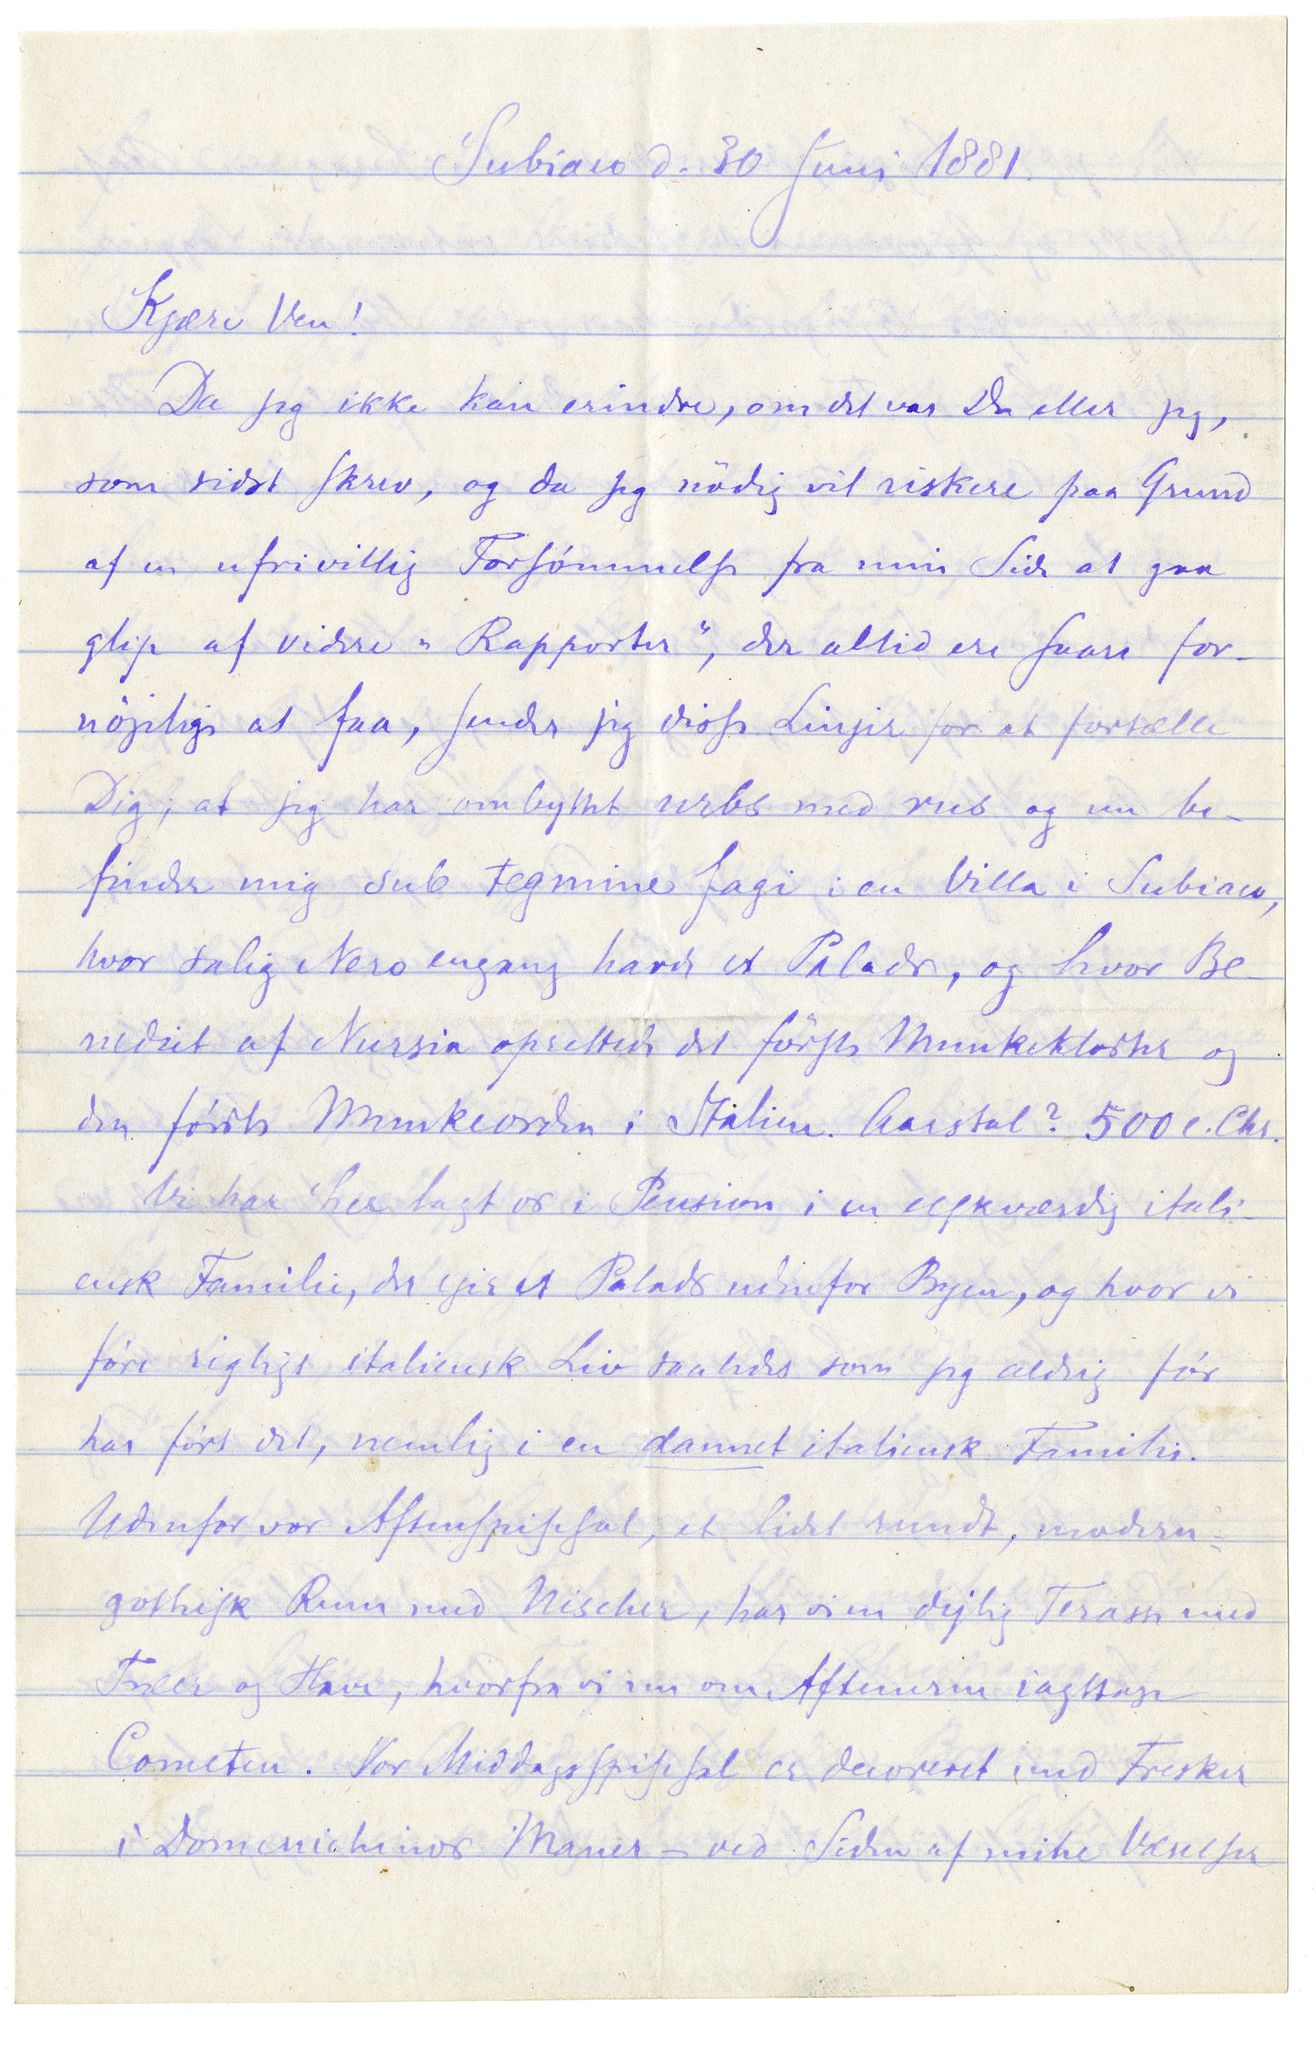 Subiaco d. 30 Juni 1881.
Kjære Ven!
Da jeg ikke kan erindre, om det var Du eller jeg,
som sidst skrev, og da jeg nödig vil riskere paa Grund
af en ufrivillig Forsömmelse fra min Side at gaa
glip af videre "Rapporter", der altid ere saare for-
nöjelige at faa, sender jeg disse Linjer for at fortælle
Dig, at jeg har ombyttet urbs med rus og nu be-
finder mig sub tegmine fagi i en Villa i Subiaco,
hvor salig Nero engang havde et Palads, og hvor Be-
nedict af Nursia oprettede det förste Munkekloster og
den förste Munkeorden i Italien. Aarstal? 500 e. Chr.
Vi har her lagt os i Pension i en elskværdig itali-
ensk Familie, der ejer et Palads udenfor Byen, og hvor vi
före rigtigt italiensk Liv saaledes som jeg aldrig för
har fört det, nemlig i en dannet italiensk Familie.
Udenfor vor Aftenspisesal, et lidet rundt, modern-
gothisk Rum med Nischer, har vi en dejlig Terasse med
Træer og Have, hvorfra vi nu om Aftenerne iagttage
Cometen. Vor Middagsspisesal er decoreret med Fresker
i Domenichinos Maner – ved Siden af mine Værelser